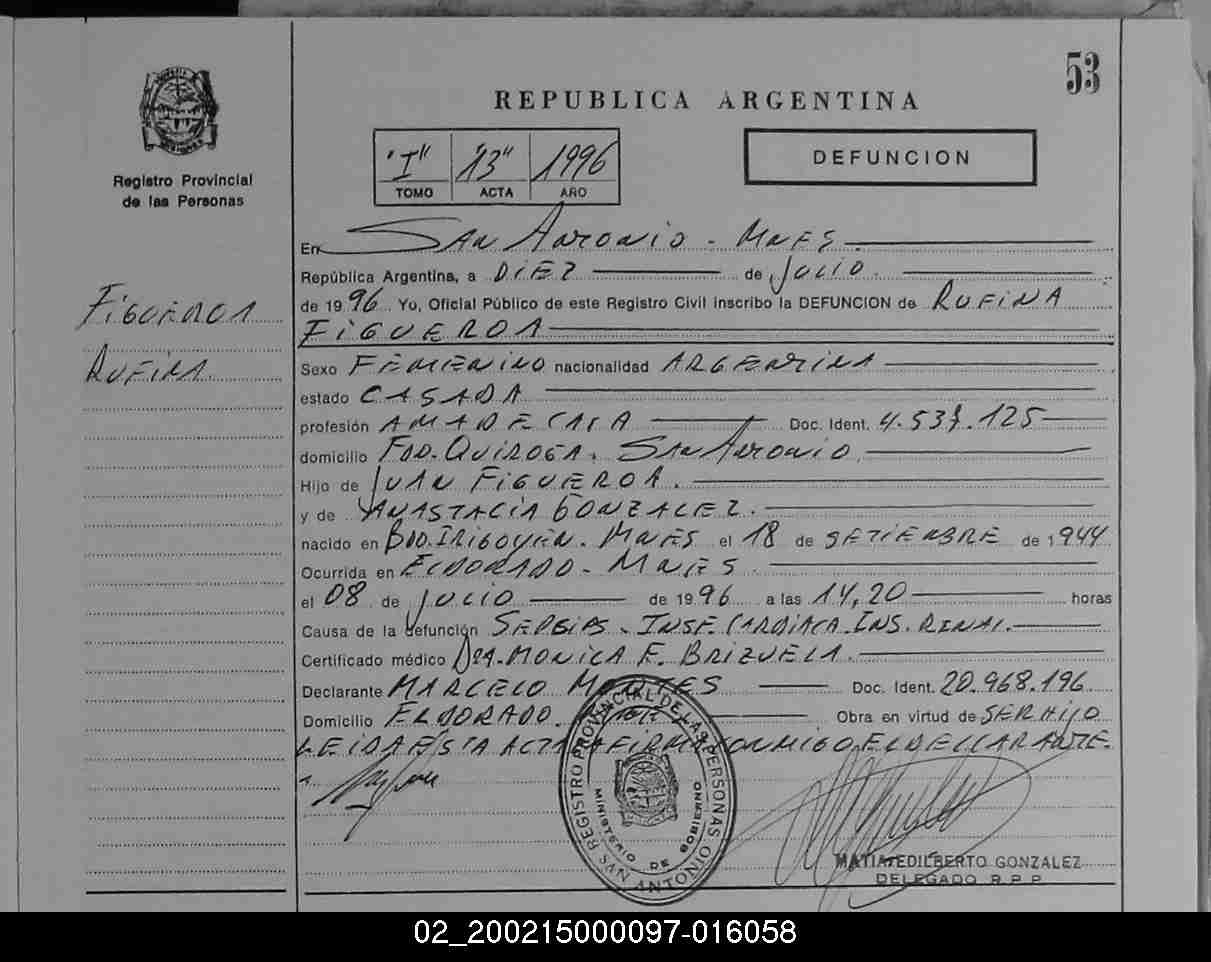 53
REPUBLICA ARGENTINA
"I" "13" 1996
TOMO ACTA AÑO
DEFUNCION
Registro Provincial
de las Personas
FIGUEROA
RUFINA
En SAN ANTONIO - MNES
República Argentina, a DIEZ de JULIO
de 1996 Yo, Oficial Público de este Registro Civil inscribo la DEFUNCION de RUFINA
FIGUEROA
Sexo FEMENINO nacionalidad ARGENTINA
estado CASADA
profesión AMA DE CASA Doc. Ident.
domicilio FDO. QUIROGA. SAN ANTONIO
Hijo de JUAN FIGUEROA.
y de ANASTACIA GONZALEZ.
nacido en BDO. IRIGOYEN. MNES el 18 de SETIEMBRE de 1944
Ocurrida en ELDORADO - MNES.
el 08 de JULIO de 1996 a las 14,20 horas
Causa de la defunción INSF. CARDIACA. INS. RENAL.
Certificado médico DRA. MONICA E. BRIZUELA.
Declarante MARCELO Doc. Ident. 20.968.196
Domicilio ELDORADO. Obra en virtud de SER HIJO
LEIDA ESTA ACTA LA FIRMA CONMIGO EL DECLARANTE.
REGISTRO PROVINCIAL DE LAS PERSONAS
MINISTERIO DE GOBIERNO
SAN ANTONIO
MATIAS EDILBERTO GONZALEZ
DELEGADO R.P.P.
02_200215000097-016058